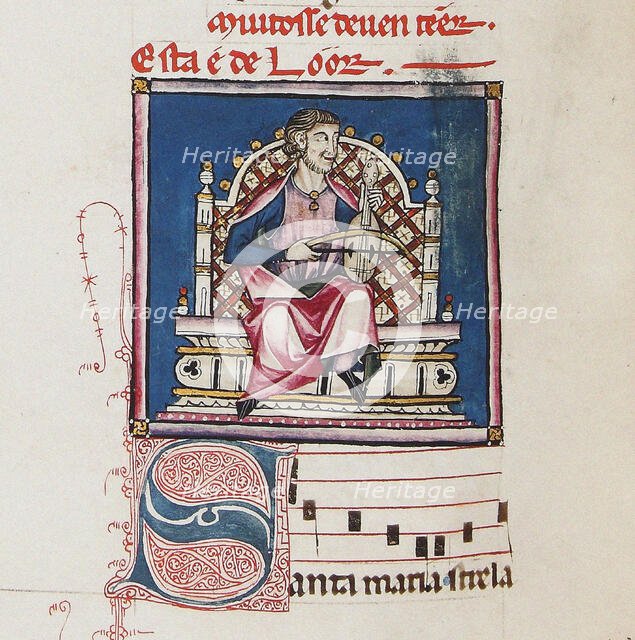 Muitosse deven tẽer.
Esta é de Loor.
Heritage Heritage
Heritage Heritage Heritage
Heritage Heritage
Santa maria strela